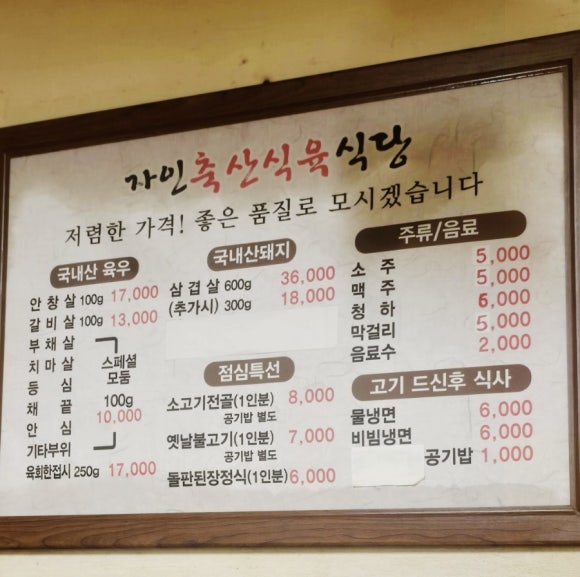 자인축산식육식당
저렴한 가격! 좋은 품질로 모시겠습니다
국내산 육우
안창살 100g 17,000
갈비살 100g 13,000
부채살
치마살
등심
채끝
안심
기타부위
스페셜
모둠
100g
10,000
육회한접시 250g 17,000
국내산돼지
삼겹살 600g 36,000
(추가시) 300g 18,000
점심특선
소고기전골(1인분) 8,000
공기밥 별도
옛날불고기(1인분) 7,000
공기밥 별도
돌판된장정식(1인분) 6,000
주류/음료
소주 5,000
맥주 5,000
청하 6,000
막걸리 5,000
음료수 2,000
고기 드신후 식사
물냉면 6,000
비빔냉면 6,000
공기밥 1,000